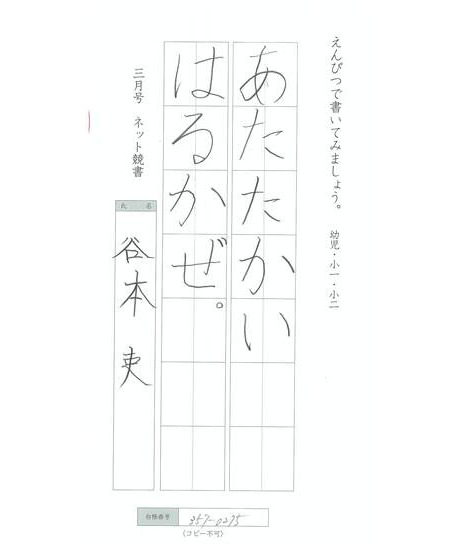 えんぴつで書いてみましょう。 幼児・小一・小二
あたたかい
はるかぜ。
三月号 ネット競書
氏名
谷本 吏
台帳番号 257-0275
(コピー不可)